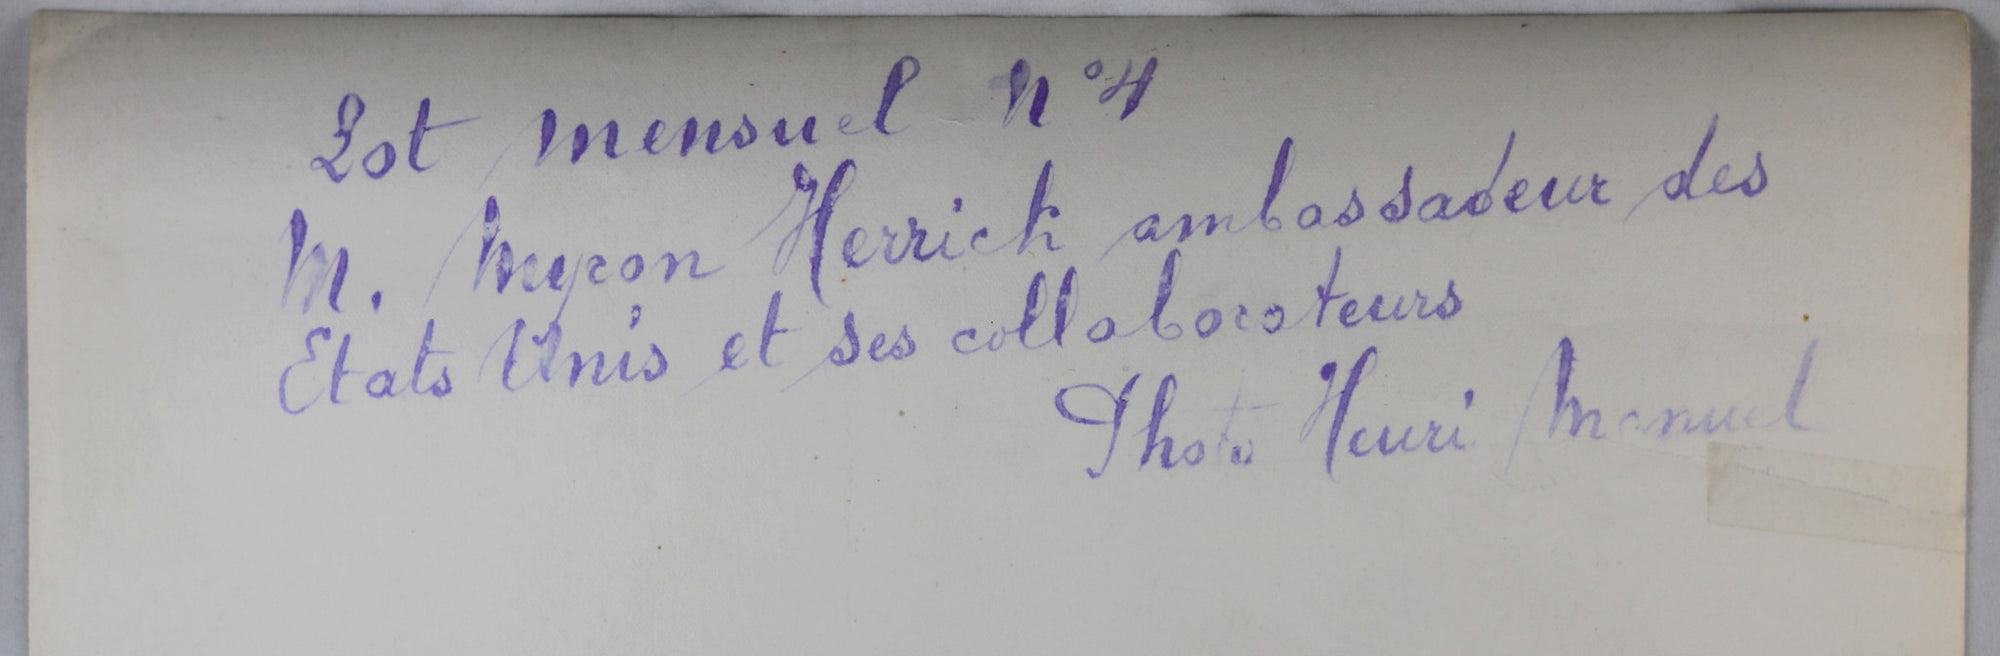 Lot mensuel N° 4
M. Myron Herrick ambassadeur des
Etats Unis et ses collaborateurs
Photo Henri Manuel